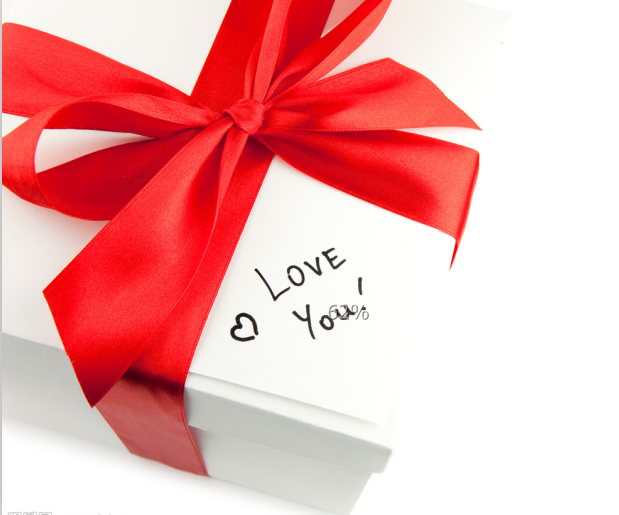 LOVE
You!
62%